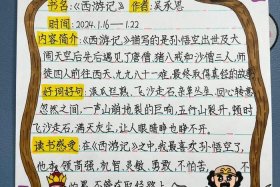 书名:《西游记》 作者:吴承恩
时间:2024.1.16—1.22
内容简介:《西游记》描写的是孙悟空出世及大
闹天空后先后遇见了唐僧,猪八戒和沙僧三人,
师徒四人前往西天,九九八十一难,最终取得真经的故事
好词好句:抓瓜丑脸,飞沙走石,幸幸么生,回心转意
忽然之间,一声山崩地裂的巨响,五行山裂开,顿时
飞沙走石,满天灰尘,让人眼睛都睁不开。
读书感受:在《西游记》之中,我最喜欢孙悟空了,
他有领高强、机智、灵敏、勇敢、不怕苦、不